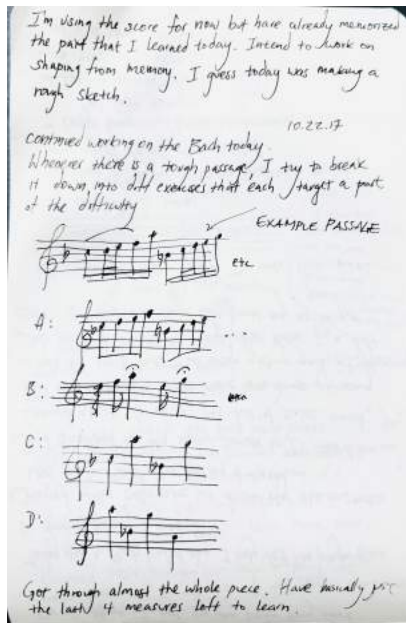 I'm using the score for now but have already memorized
the part that I learned today. Intend to work on
shaping from memory. I guess today was making a
rough sketch.
10.22.17
Continued working on the Bach today.
Whenever there is a tough passage, I try to break
it down into diff exercises that each target a part
of the difficulty
EXAMPLE PASSAGE
etc
A: ...
B:
C:
D:
Got through almost the whole piece. Have basically just
the last 4 measures left to learn.